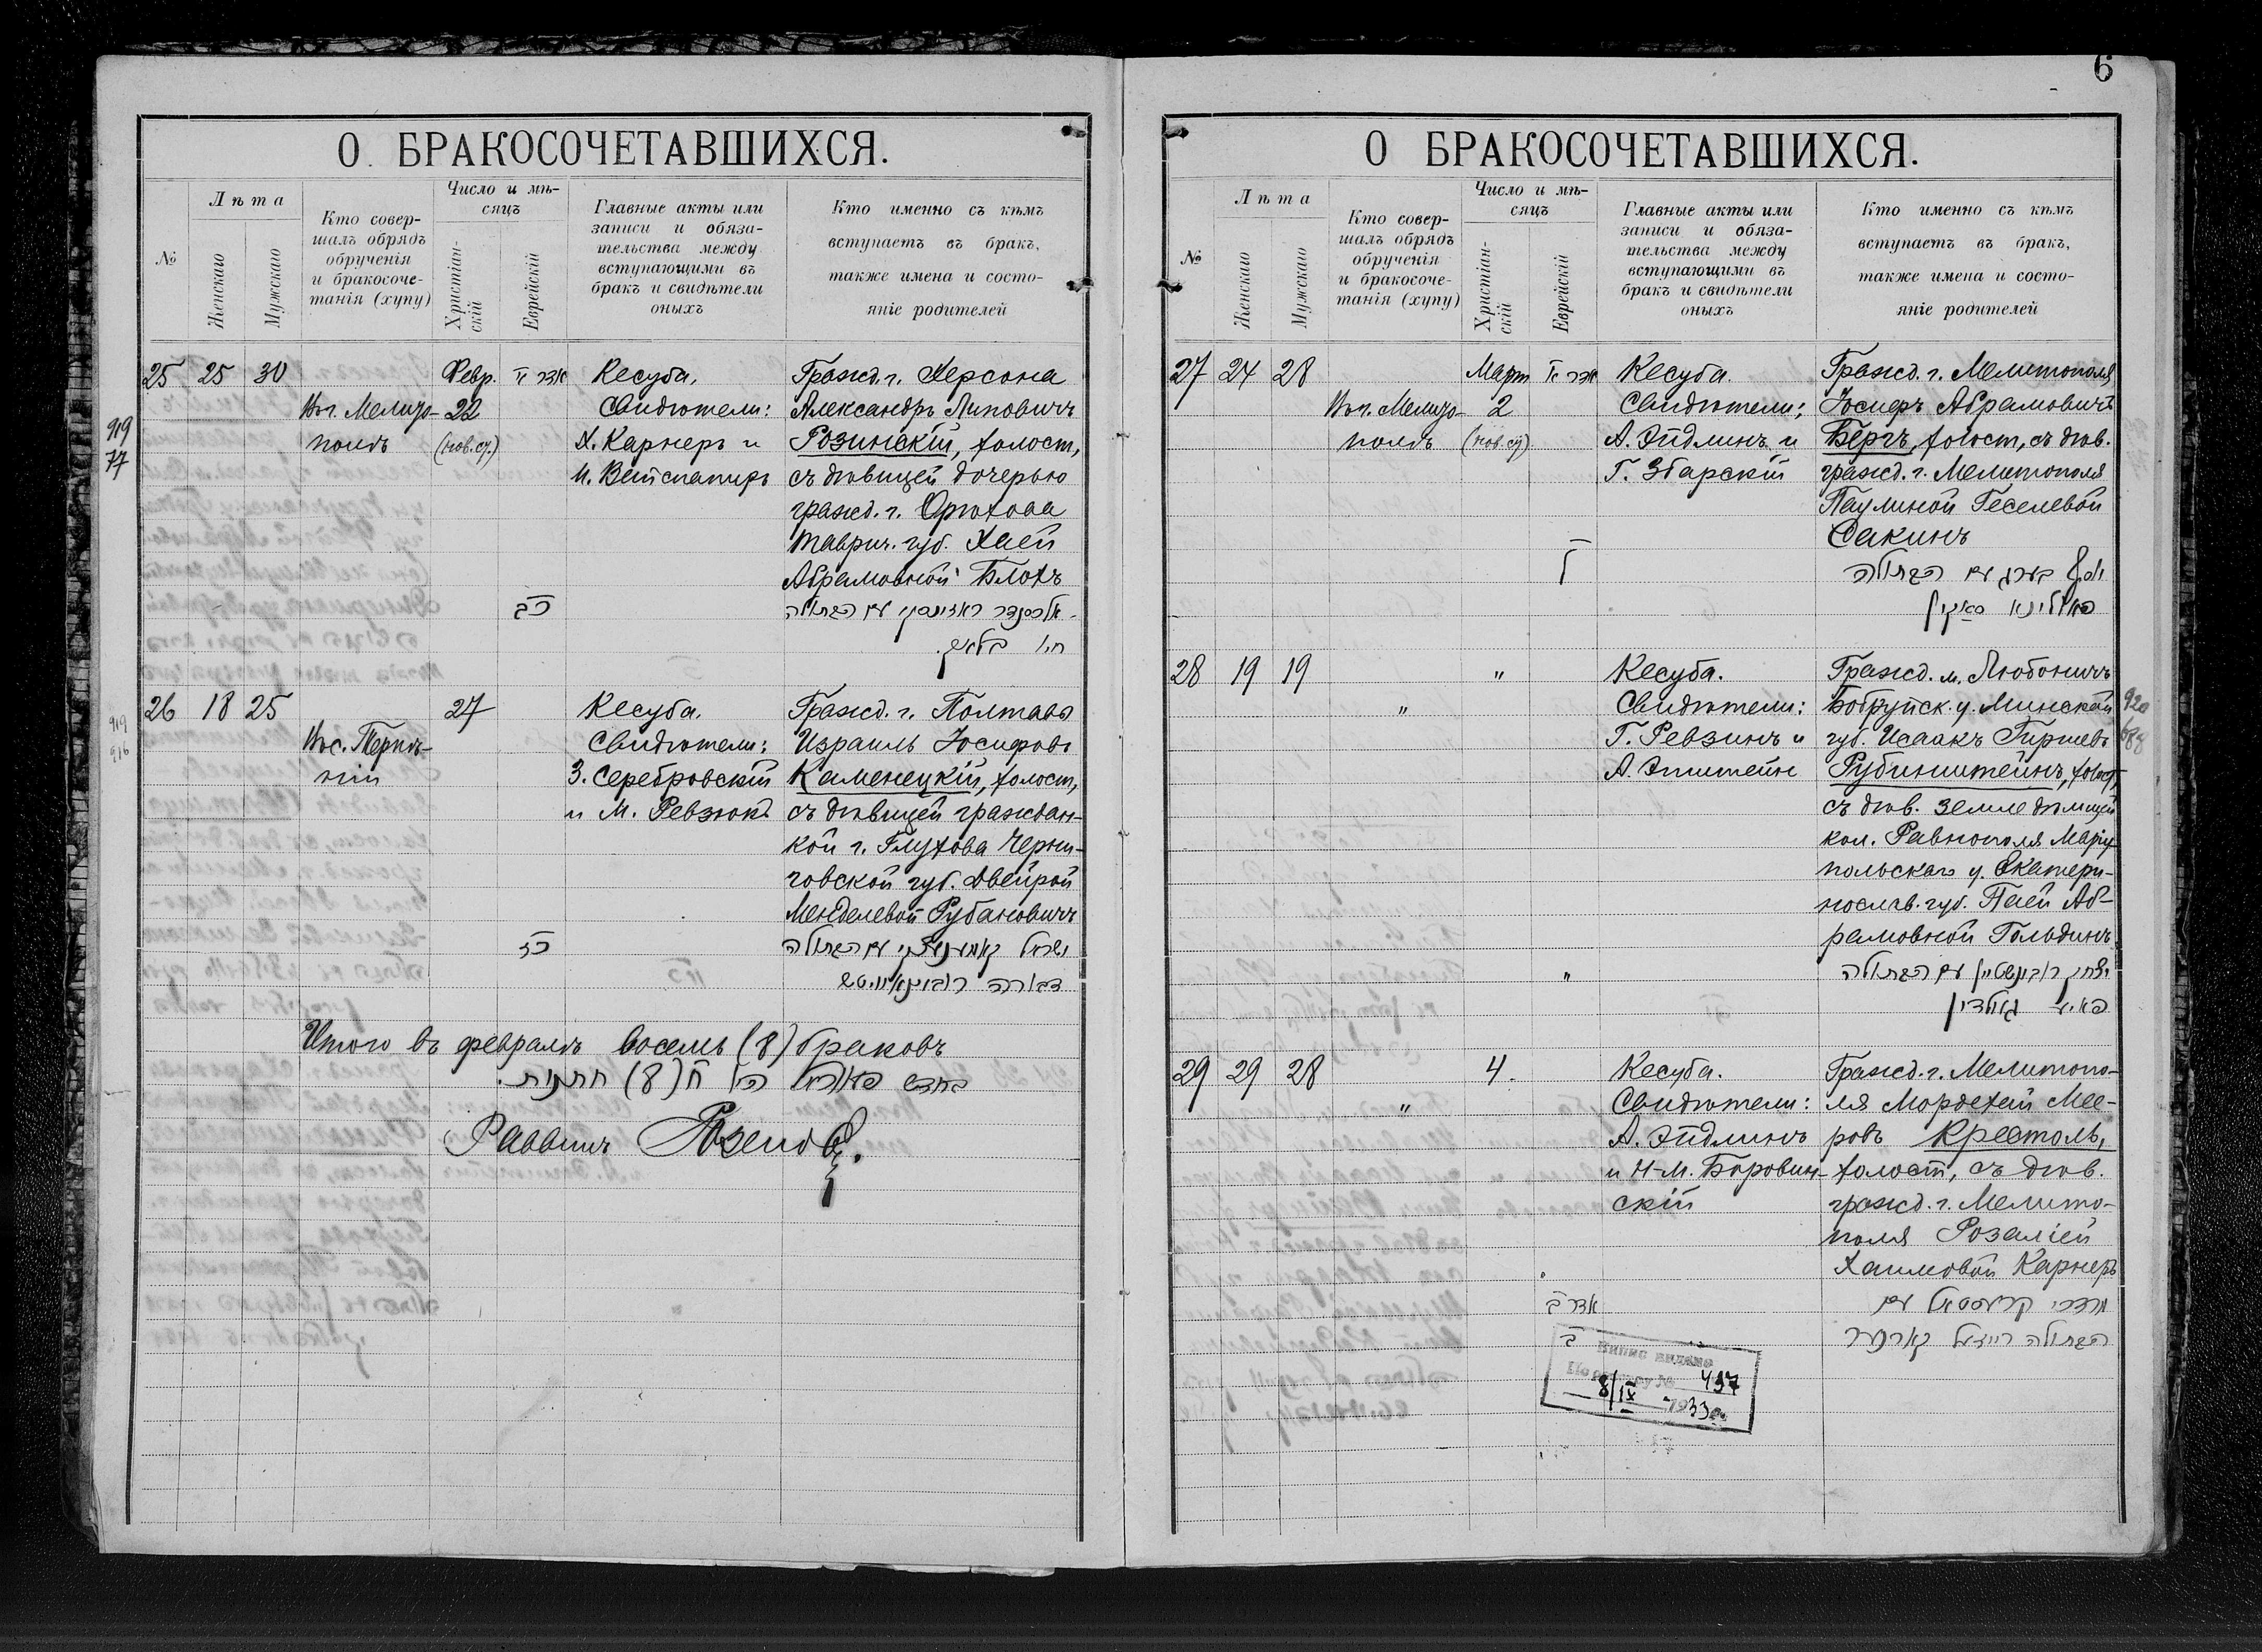 6
О. БРАКОСОЧЕТАВШИХСЯ.
№
Лѣта
Женскаго
Мужскаго
Кто совер-
шалъ обрядъ
обрученія
и бракосоче-
танія (хупу)
Число и мѣ-
сяцъ
Христіан-
скій
Еврейскій
Главные акты или
записи и обяза-
тельства между
вступающими въ
бракъ и свидѣтели
оныхъ
Кто именно съ кѣмъ
вступаетъ въ бракъ,
также имена и состо-
яніе родителей
919
77
25 25 30
Въ г. Мелито-
полѣ
Февр.
22
(нов. ст.)
אדר
כב
Кесуба.
Свидѣтели:
Х. Карнеръ и
И. Вейспапиръ
Гражд. г. Херсона
Александръ Липовичъ
Розинскій, холост,
съ дѣвицей дочерью
гражд. г. Орѣхова
Таврич. губ. Хаей
Абрамовной Блохъ
אלכסנדר ראזינסקי עם הבתולה
חיו בלאך.
919
916
26 18 25
Въ с. Терпѣ-
ніи
27
כז
Кесуба.
Свидѣтели:
З. Серебровскій
и М. Ревзюкъ
Гражд. г. Полтавы
Израиль Іосифовъ
Каменецкій, холост,
съ дѣвицей граждан-
кой г. Глухова Черни-
говской губ. Двейрой
Менделевой Рубановичъ
ישראל קאמענעצקי עם הבתולה
דבורה רובינאוויטש
Итого въ февралѣ восемь (8) браковъ
בחדש פעווראל הי׳ ח (8) חתנות.
Раввинъ
О БРАКОСОЧЕТАВШИХСЯ.
№
Лѣта
Женскаго
Мужскаго
Кто совер-
шалъ обрядъ
обрученія
и бракосоче-
танія (хупу)
Число и мѣ-
сяцъ
Христіан-
скій
Еврейскій
Главные акты или
записи и обяза-
тельства между
вступающими въ
бракъ и свидѣтели
оныхъ
Кто именно съ кѣмъ
вступаетъ въ бракъ,
также имена и состо-
яніе родителей
27 24 28
Въ г. Мелито-
полѣ
Март
2
(нов. ст)
אדר
Кесуба.
Свидѣтели:
А. Эйдлинъ и
Г. Збарскій
Гражд. г. Мелитополя
Іосифъ Абрамовичъ
Бергъ, холост, съ дѣв.
гражд. г. Мелитополя
Паулиной Геселевой
Сакинъ
יוסף בערג עם הבתולה
פאולינא סאקין
28 19 19
"
"
"
Кесуба.
Свидѣтели:
Г. Ревзинъ и
А. Эпштейн
Гражд. м. Любоничъ
Бобруйск. у. Минской
губ. Исаакъ Гиршевъ
Рубинштейнъ, холост,
съ дѣв. земледѣлицей
кол. Равнополя Маріу
польскаго у. Екатери-
нослав. губ. Паей Аб-
рамовной Гольдинъ
יצחק רובינשטיין עם הבתולה
פאיע גולדין
920
29 29 28
"
4.
אדר ב
ב
Кесуба.
Свидѣтели:
А. Эйдлинъ
и Н-М. Боровин-
скій
Гражд. г. Мелитопо-
ля Мордехай Мее-
ровъ Крестоль,
холост, съ дѣв.
гражд. г. Мелито-
поля Розаліей
Хаимовой Карнеръ
מרדכי קרעסטאל עם
הבתולה רייזעל קארנער
Випис видано
По реєстру № 437
8/IX 1933 р.